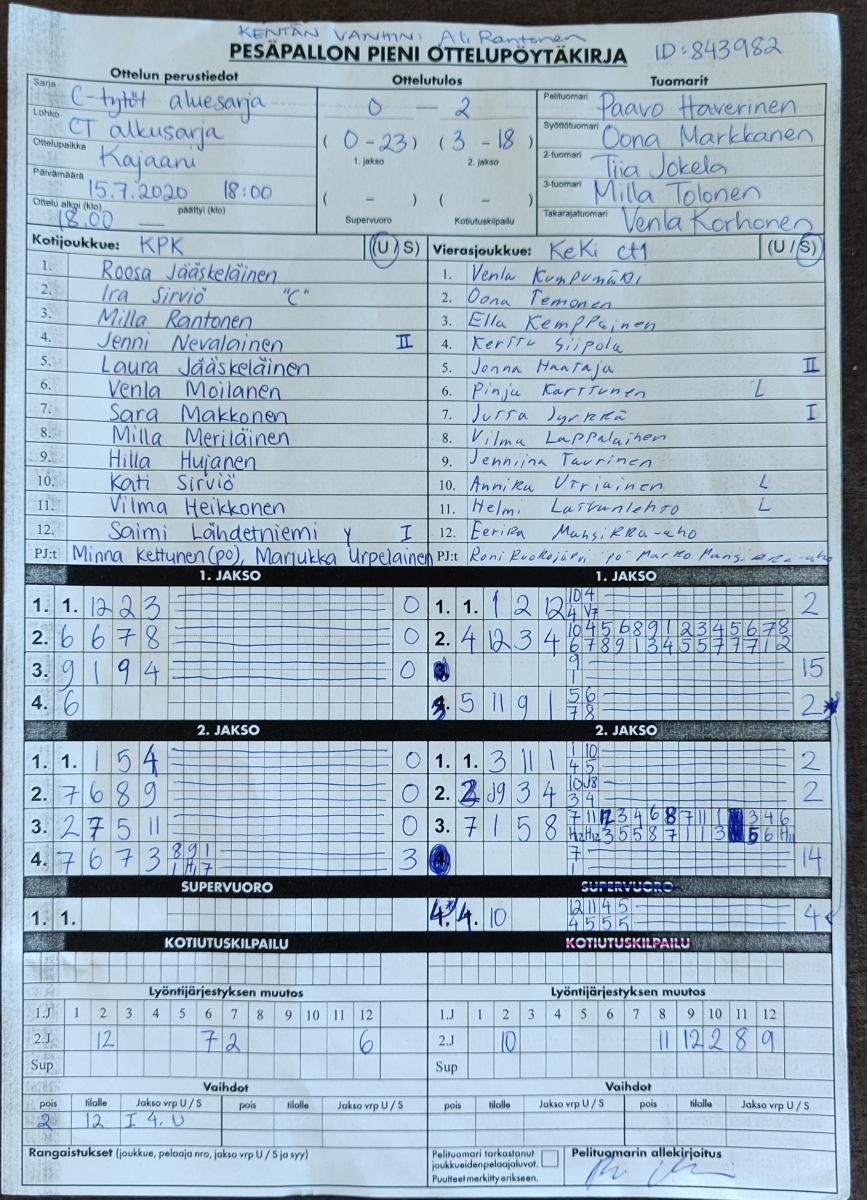 KENTÄN VANHIN: Ali Rantonen
PESÄPALLON PIENI OTTELUPÖYTÄKIRJA ID:843982
Ottelun perustiedot Ottelutulos Tuomarit
Sarja C-tytöt aluesarja 0 — 2 Pelituomari Paavo Haverinen
Lohko CT alkusarja (0-23) (3-18) Syöttötuomari Oona Markkanen
1. jakso 2. jakso
Ottelupaikka Kajaani 2-tuomari Tiia Jokela
Päivämäärä 15.7.2020 18:00 ( - ) ( - ) 3-tuomari Milla Tolonen
Ottelu alkoi (klo) 18.00 päättyi (klo) — Supervuoro Kotiutuskilpailu Takarajatuomari Venla Korhonen
Kotijoukkue: KPK (U/S) Vierasjoukkue: KeKi ct1 (U/S)
1. Roosa Jääskeläinen 1. Venla Kumpumäki
2. Ira Sirviö "C" 2. Oona Temonen
3. Milla Rantonen 3. Ella Kemppainen
4. Jenni Nevalainen II 4. Kerttu Siipola
5. Laura Jääskeläinen 5. Jonna Haataja II
6. Venla Moilanen 6. Pinja Karttunen L
7. Sara Makkonen 7. Jutta Jyrkkä I
8. Milla Meriläinen 8. Vilma Lappalainen
9. Hilla Hujanen 9. Jenniina Taurinen
10. Kati Sirviö 10. Annika Utriainen L
11. Vilma Heikkonen 11. Helmi L
12. Saimi Lähdetniemi y I 12. Eerika Mansikka-aho
PJ:t Minna Kettunen (po), Marjukka Urpelainen PJ:t Roni Ruokojärvi po Marko Mansikka-aho
1. JAKSO 1. JAKSO
1. 1. 12 2 3 0 1. 1. 1 2 12 10 4 2
4 V7
2. 6 6 7 8 0 2. 4 12 3 4 10 4 5 6 8 9 1 2 3 4 5 6 7 8
6 7 8 9 1 3 4 5 5 7 7 7 1 2
3. 9 1 9 4 0 9 15
1
4. 6 5 11 9 1 5 6 2*
7 8
2. JAKSO 2. JAKSO
1. 1. 1 5 4 0 1. 1. 3 11 1 1 10 2
4 5
2. 7 6 8 9 0 2. J9 3 4 10 J8 2
3 4
3. 2 7 5 11 0 3. 7 1 5 8 7 11 12 3 4 6 8 7 11 1 3 4 6
H2 H12 3 5 5 8 7 1 1 3 5 6 H11
4. 7 6 7 3 8 9 1 3 7 14
1 H1 7 1
SUPERVUORO SUPERVUORO
1. 1. 4.* 4. 10 12 11 4 5 4
4 5 5 5
KOTIUTUSKILPAILU KOTIUTUSKILPAILU
Lyöntijärjestyksen muutos Lyöntijärjestyksen muutos
1.J 1 2 3 4 5 6 7 8 9 10 11 12 1.J 1 2 3 4 5 6 7 8 9 10 11 12
2.J 12 7 2 6 2.J 10 11 12 2 8 9
Sup Sup
Vaihdot Vaihdot
pois tilalle Jakso vrp U / S pois tilalle Jakso vrp U / S pois tilalle Jakso vrp U / S pois tilalle Jakso vrp U / S
2 12 I 4. U
Rangaistukset (joukkue, pelaaja nro, jakso vrp U / S ja syy) Pelituomari tarkastanut joukkueidenpelaajaluvat. Pelituomarin allekirjoitus
Puutteet merkitty erikseen.